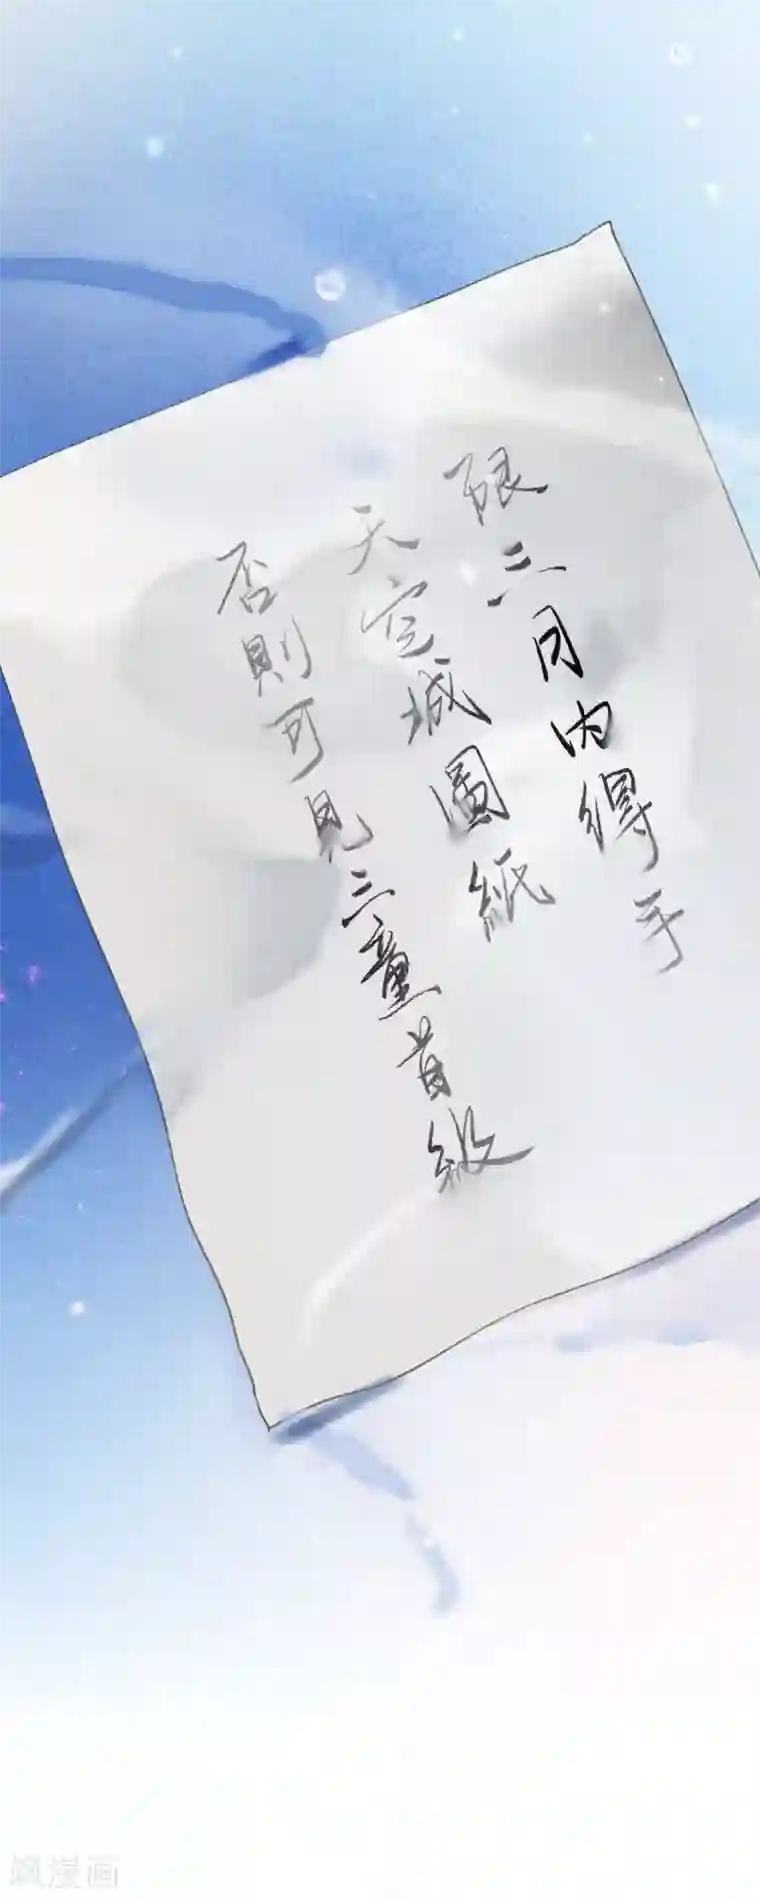 限三月内得手
天空城圖紙
否則可見三童首級
飒漫画